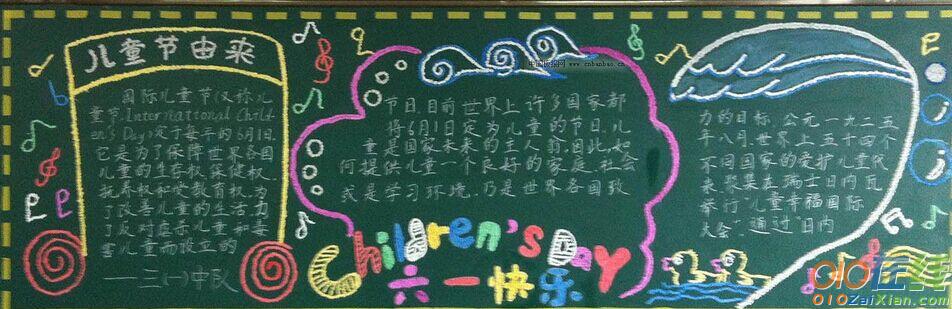 儿童节由来
国际儿童节(又称儿
童节,International Child-
en's Day)定于每年的6月1日.
它是为了保障世界各国
儿童的生存权、保健权、
抚养权和受教育权,为
了改善儿童的生活,为
了反对虐杀儿童和毒
害儿童而设立的
三(一)中队
节日.目前世界上许多国家都
将6月1日定为儿童的节日.儿
童是国家未来的主人翁.因此,如
何提供儿童一个良好的家庭、社会
或是学习环境,乃是世界各国致
Children's Day
六一快乐
力的目标.公元一九二五
年八月,世界上五十四个
不同国家的爱护儿童代
表,聚集在瑞士日内瓦
举行"儿童幸福国际
大会".通过"日内
www.cnbanbao.cn
010在线
010ZaiXian.com